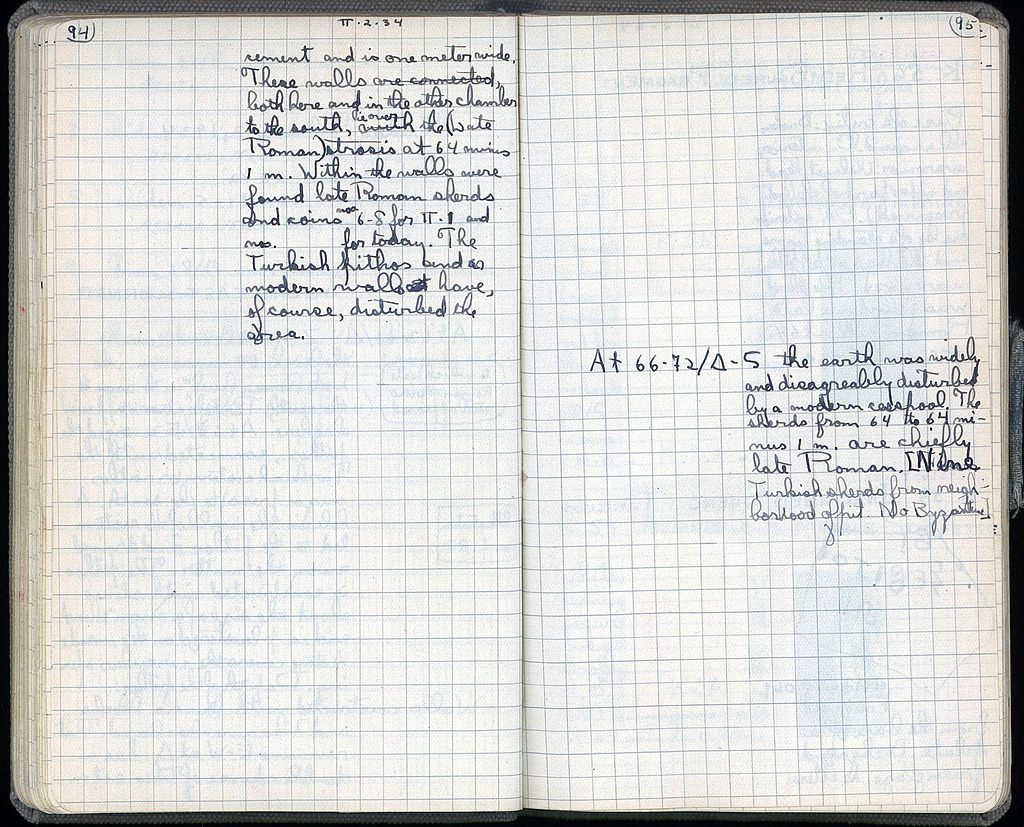 94
II.2.34
cement and is one meter wide.
These walls are connected,
both here and in the other chamber
to the south, lie over with the (Late
Roman) strosis at 64 minus
1 m. Within the walls were
found late Roman sherds
and coins nos 6-8 for II.1 and
nos. for today. The
Turkish pithos and
modern walls have,
of course, disturbed the
area.
95
At 66-72/Δ-5 the earth was widely
and disagreeably disturbed
by a modern cesspool. The
sherds from 64 to 64 mi-
nus 1 m. are chiefly
late Roman. [Nine
Turkish sherds from neigh-
borhood of pit. No Byzantine]